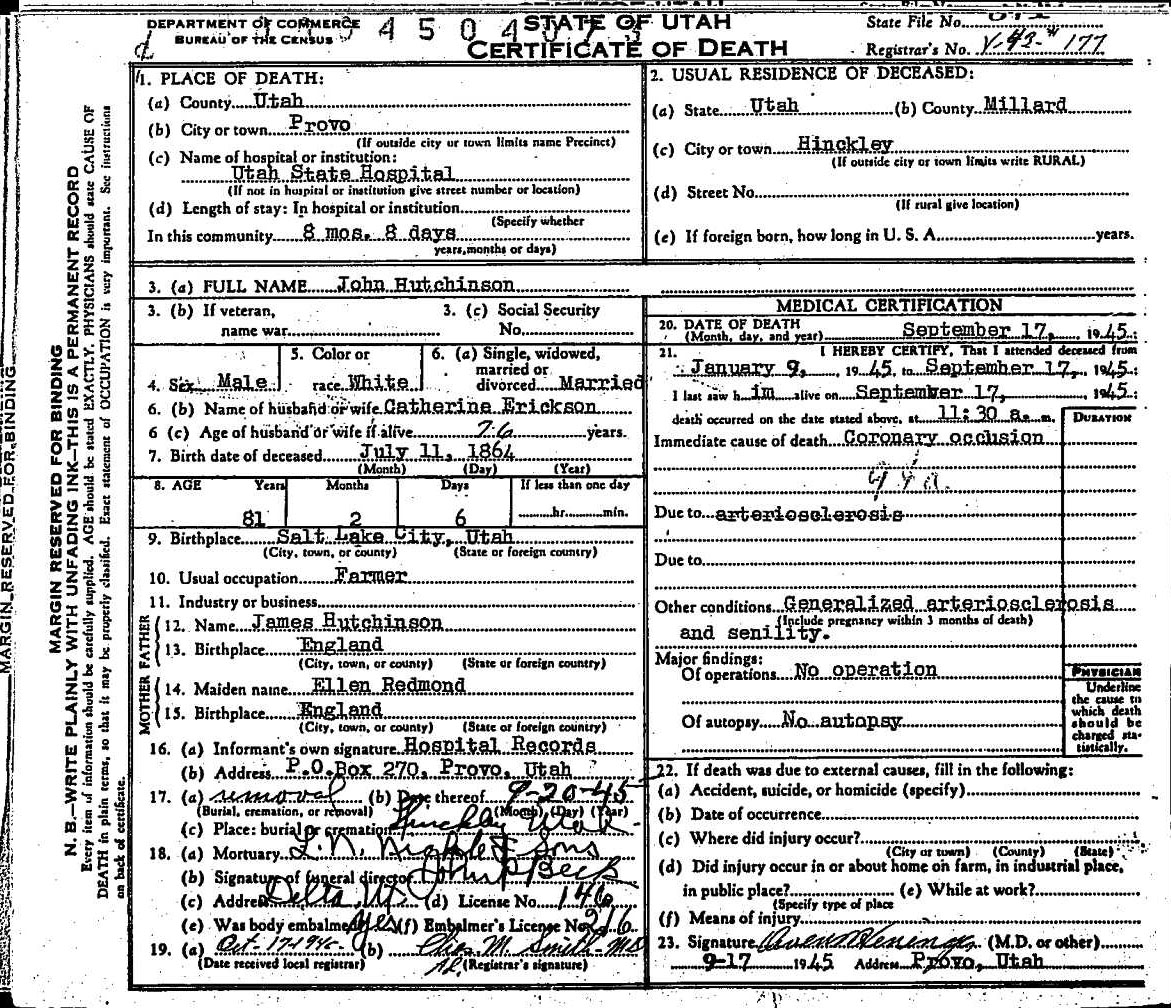 DEPARTMENT OF COMMERCE
BUREAU OF THE CENSUS
4 5 0 4
STATE OF UTAH
CERTIFICATE OF DEATH
State File No.
Registrar's No. V-43-177
MARGIN RESERVED FOR BINDING
MARGIN RESERVED FOR BINDING
N. B.—WRITE PLAINLY WITH UNFADING INK—THIS IS A PERMANENT RECORD
Every item of information should be carefully supplied. AGE should be stated EXACTLY. PHYSICIANS should state CAUSE OF
DEATH in plain terms, so that it may be properly classified. Exact statement of OCCUPATION is very important. See instructions
on back of certificate.
1. PLACE OF DEATH:
(a) County Utah
(b) City or town Provo
(If outside city or town limits name Precinct)
(c) Name of hospital or institution:
Utah State Hospital
(If not in hospital or institution give street number or location)
(d) Length of stay: In hospital or institution
(Specify whether
In this community 8 mos. 8 days
years, months or days)
2. USUAL RESIDENCE OF DECEASED:
(a) State Utah (b) County Millard
(c) City or town Hinckley
(If outside city or town limits write RURAL)
(d) Street No.
(If rural give location)
(e) If foreign born, how long in U. S. A. years.
3. (a) FULL NAME John Hutchinson
3. (b) If veteran,
name war
3. (c) Social Security
No.
4. Sex Male
5. Color or
race White
6. (a) Single, widowed,
married or
divorced Married
6. (b) Name of husband or wife Catherine Erickson
6 (c) Age of husband or wife if alive 76 years.
7. Birth date of deceased July 11, 1864
(Month) (Day) (Year)
8. AGE Years Months Days If less than one day
81 2 6 hr. min.
9. Birthplace Salt Lake City, Utah
(City, town, or county) (State or foreign country)
10. Usual occupation Farmer
11. Industry or business
FATHER
12. Name James Hutchinson
13. Birthplace England
(City, town, or county) (State or foreign country)
MOTHER
14. Maiden name Ellen Redmond
15. Birthplace England
(City, town, or county) (State or foreign country)
16. (a) Informant's own signature Hospital Records
(b) Address P.O.Box 270, Provo, Utah
17. (a) removal (b) Date thereof 9-20-45
(Burial, cremation, or removal) (Month) (Day) (Year)
(c) Place: burial or cremation Hinckley Utah
18. (a) Mortuary & Sons
(b) Signature of funeral director John P Beck
(c) Address Delta, Ut (d) License No. 146
(e) Was body embalmed yes (f) Embalmer's License No. 216
19. (a) Oct-17-1945 (b) Chas M. Smith M.D.
(Date received local registrar) (Registrar's signature)
MEDICAL CERTIFICATION
20. DATE OF DEATH
(Month, day, and year) September 17, 1945:
21. I HEREBY CERTIFY, That I attended deceased from
January 9, 1945, to September 17, 1945:
I last saw him alive on September 17, 1945:
death occurred on the date stated above, at 11:30 a. m.
DURATION
Immediate cause of death Coronary occlusion
Due to arteriosclerosis
Due to
Other conditions Generalized arteriosclerosis
(Include pregnancy within 3 months of death)
and senility.
Major findings:
Of operations No operation
Of autopsy No autopsy
PHYSICIAN
Underline
the cause to
which death
should be
charged sta-
tistically.
22. If death was due to external causes, fill in the following:
(a) Accident, suicide, or homicide (specify)
(b) Date of occurrence
(c) Where did injury occur?
(City or town) (County) (State)
(d) Did injury occur in or about home on farm, in industrial place,
in public place? (e) While at work?
(Specify type of place
(f) Means of injury
23. Signature (M.D. or other)
9-17 1945 Address Provo, Utah